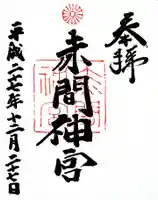 奉拝
赤間神宮
平成二十七年十二月二十七日